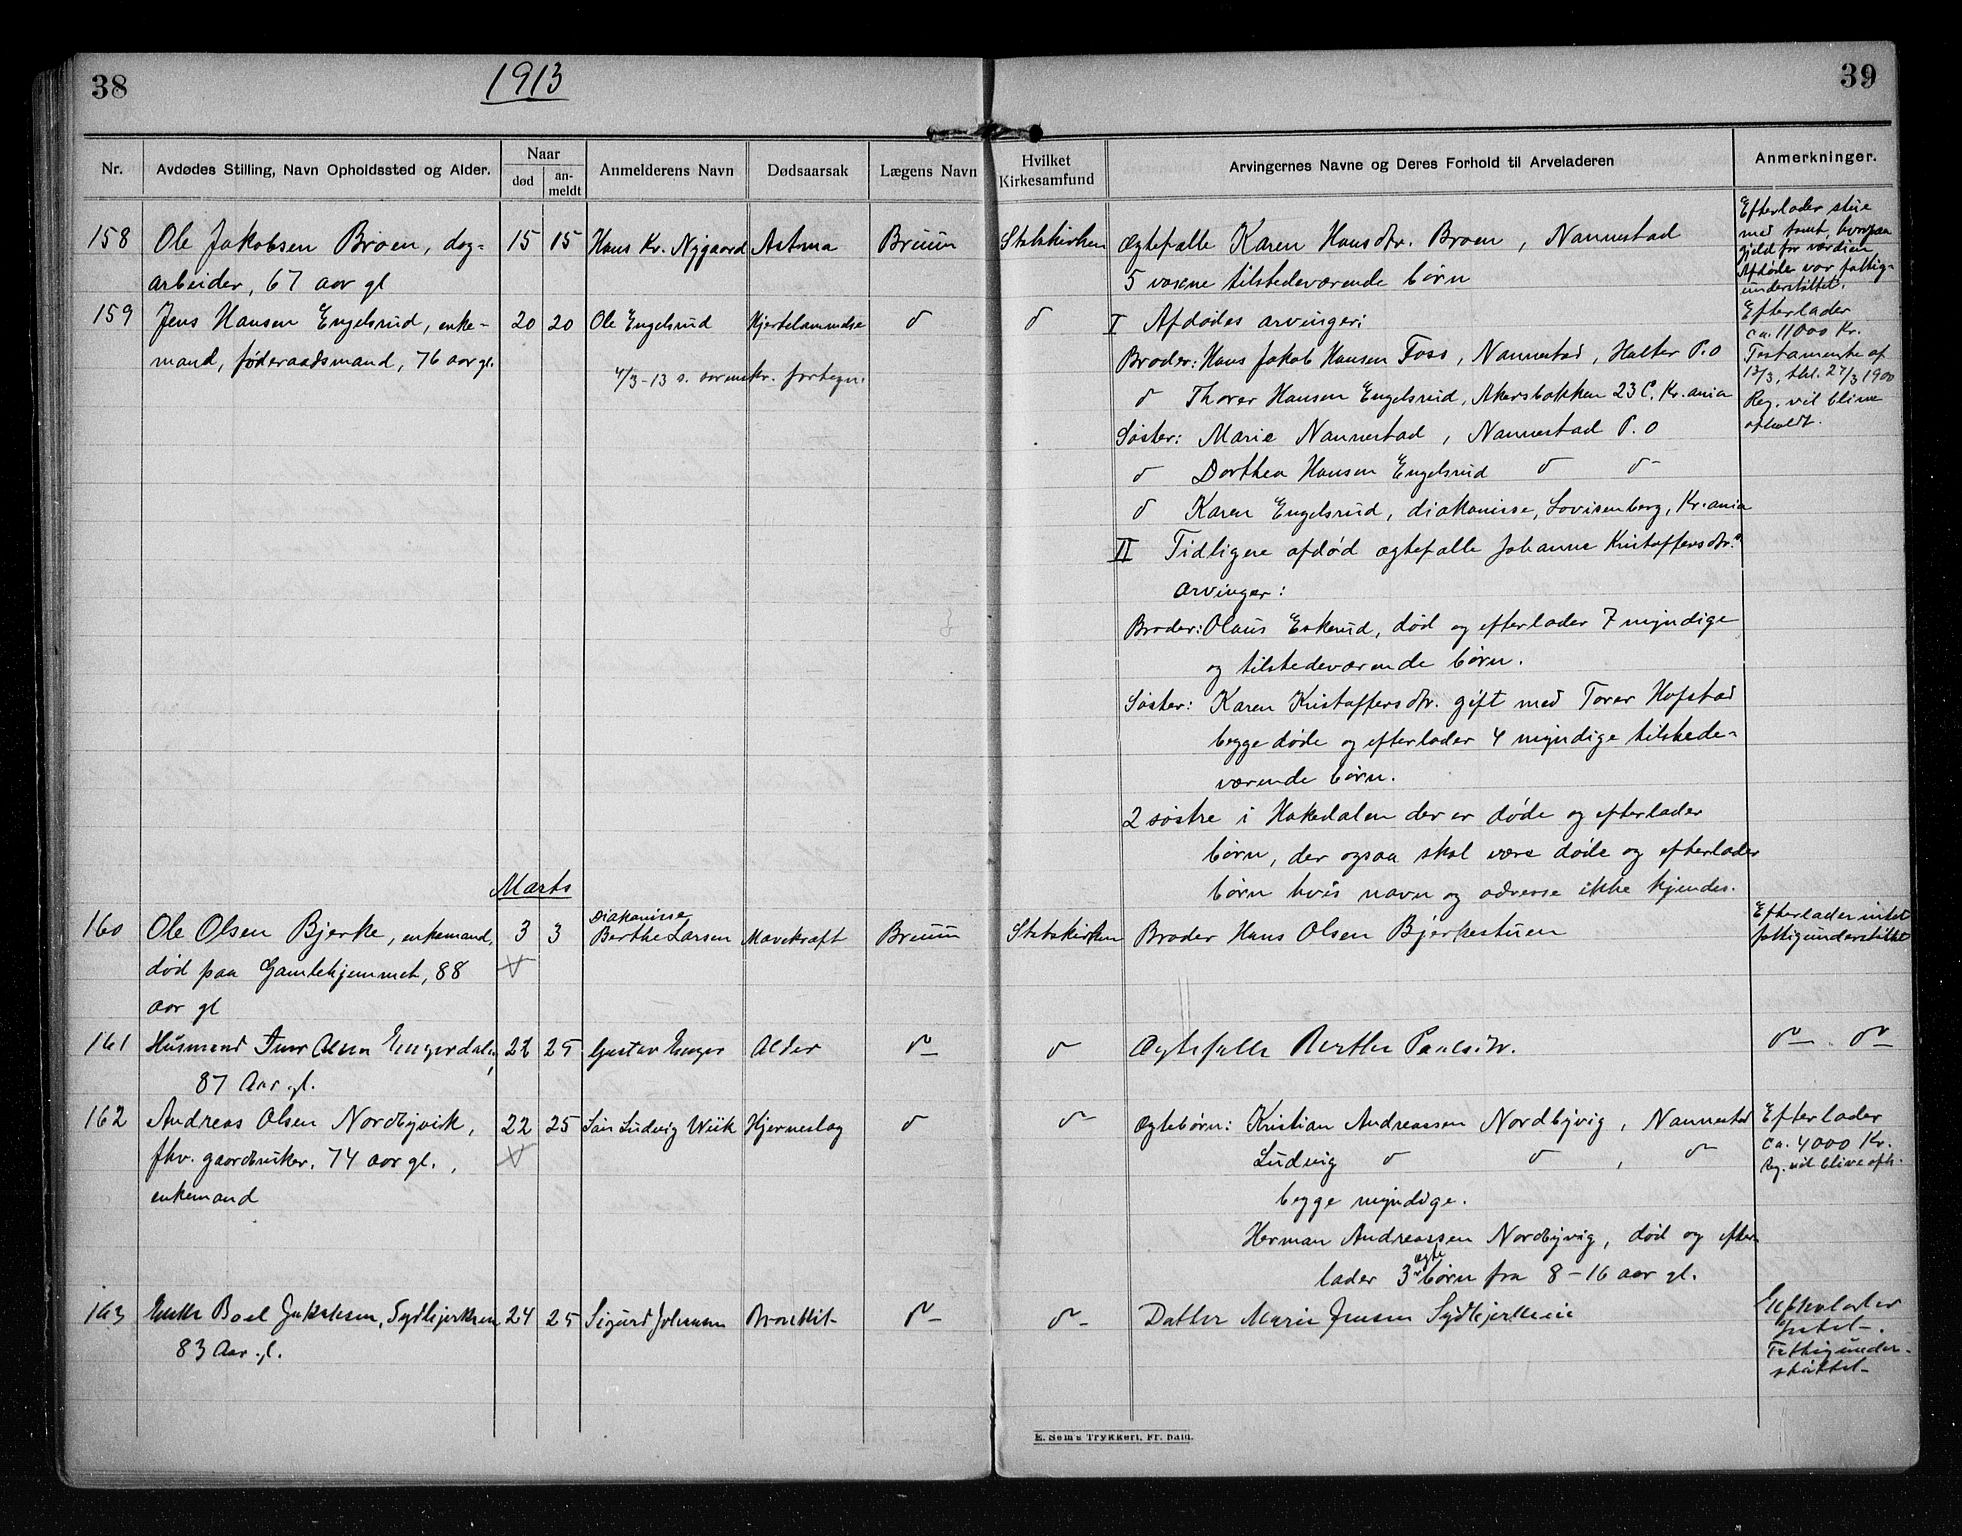 38
1913
39
Nr.
Avdødes Stilling, Navn Opholdssted og Alder.
Naar
død
an-
meldt
Anmelderens Navn
Dødsaarsak
Lægens Navn
Hvilket
Kirkesamfund
Arvingernes Navne og Deres Forhold til Arveladeren
Anmerkninger.
158 Ole Jakobsen Broen, dag- 15 15 Hans Kr. Nygaard Astma Bruun Statskirken Ægtefælle Karen Hansdtr. Broen, Nannestad
arbeider, 67 aar gl 5 voxne tilstedeværende børn
Efterlader stue
med tomt, hvorpaa
gjeld for værdien
Afdøde var fattig-
understøttet.
159 Jens Hansen Engelsrud, enke- 20 20 Ole Engelsrud Kjertelammelse d d I Afdødes arvinger:
mand, føderaadsmand, 76 aar gl. Broder: Hans Jakob Hansen Foss, Nannestad, Holter P.O
4/3-13 s. sorenskr. fortegn.
d Thorer Hansen Engelsrud, Akersbakken 23 C, Kr.ania
Søster: Marie Nannestad, Nannestad P.O
d Dorthea Hansen Engelsrud d d
d Karen Engelsrud, diakonisse, Lovisenberg, Kr.ania
II Tidligere afdød ægtefælle Johanne Kristoffersdtr.s
arvinger:
Broder: Olaus Eskerud, død og efterlader 7 myndige
og tilstedeværende børn.
Søster: Karen Kristoffersdtr. gift med Torer Hofstad
begge døde og efterlader 4 myndige tilstede-
værende børn.
2 søstre i Hakedalen der er døde og efterlader
børn, der ogsaa skal være døde og efterlader
børn hvis navn og adresse ikke kjendes.
Efterlader
ca. 11000 Kr.
Testamente af
13/3, tbl. 27/3 1900
Reg. vil blive
afholdt.
Marts
160 Ole Olsen Bjerke, enkemand, 3 3 Diakonisse
Berthe Larsen Mavekræft Bruun Statskirken Broder Hans Olsen Bjerkestuen
død paa Gamlehjemmet, 88
aar gl
Efterlader intet
fattigunderstøttet
161 Husmand Olsen Engerdalen, 22 25 Gustav Enger Alder d d Ægtefælle Berthe Paulsdtr. d d
87 Aar gl.
162 Andreas Olsen Nordbyvik, 22 25 Søn Ludvig Wiik Hjerneslag d d Ægtebørn: Kristian Andreassen Nordbyvig, Nannestad
fhv. gaardbruker, 74 aar gl., Ludvig d d, d
enkemand begge myndige.
Herman Andreassen Nordbyvig, død og efter-
lader 3 ægte børn fra 8-16 aar gl.
Efterlader
ca. 4000 Kr.
Reg. vil blive afh.
163 Enke Boel Jakobsen, Sydbjerkeeie 24 25 Sigurd Johansen Bronkit d d Datter Marie Jensen Sydbjerkeeie
83 Aar gl.
Efterlader
Intet.
Fattigunder-
støttet
E. Sem's Trykkeri, Fr.hald.